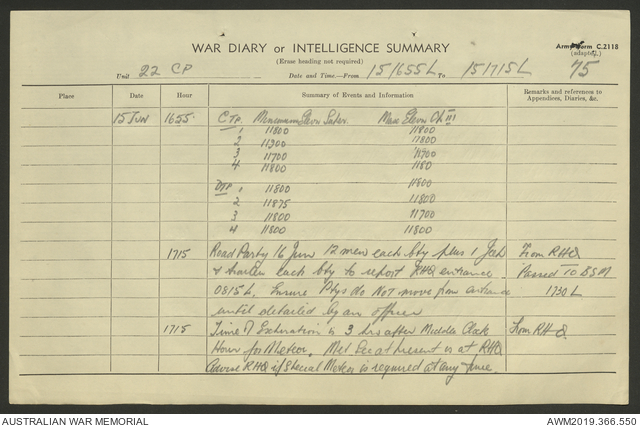 Army Form C.2118
(adapted)
WAR DIARY or INTELLIGENCE SUMMARY
(Erase heading not required)
75
Unit 22 CP Date and Time.—From 15/1655L To 15/1715L
Place Date Hour Summary of Events and Information Remarks and references to Appendices, Diaries, &c.
15 JUN 1655 CTP Minimum Elevn Max Elevn Ch III
1 11800 11800
2 11900 11800
3 11700 11900
4 11800 1180
DTP 1 11800 11800
2 11875 11800
3 11800 11700
4 11800 11800
1715 Road Party 16 Jun 12 men each bty plus 1 From RHQ
each bty to report RHQ entrance Passed TO BSM
0815L. Ensure Ptys do NOT move from entrance 1730 L
until detailed by an officer
1715 Time of Expiration is 3 hrs after Middle Clock From RHQ.
Hour for Meteor. Met Sec at present is at RHQ
Advise RHQ if Special Meteor is required at any time.
AUSTRALIAN WAR MEMORIAL AWM2019.366.550